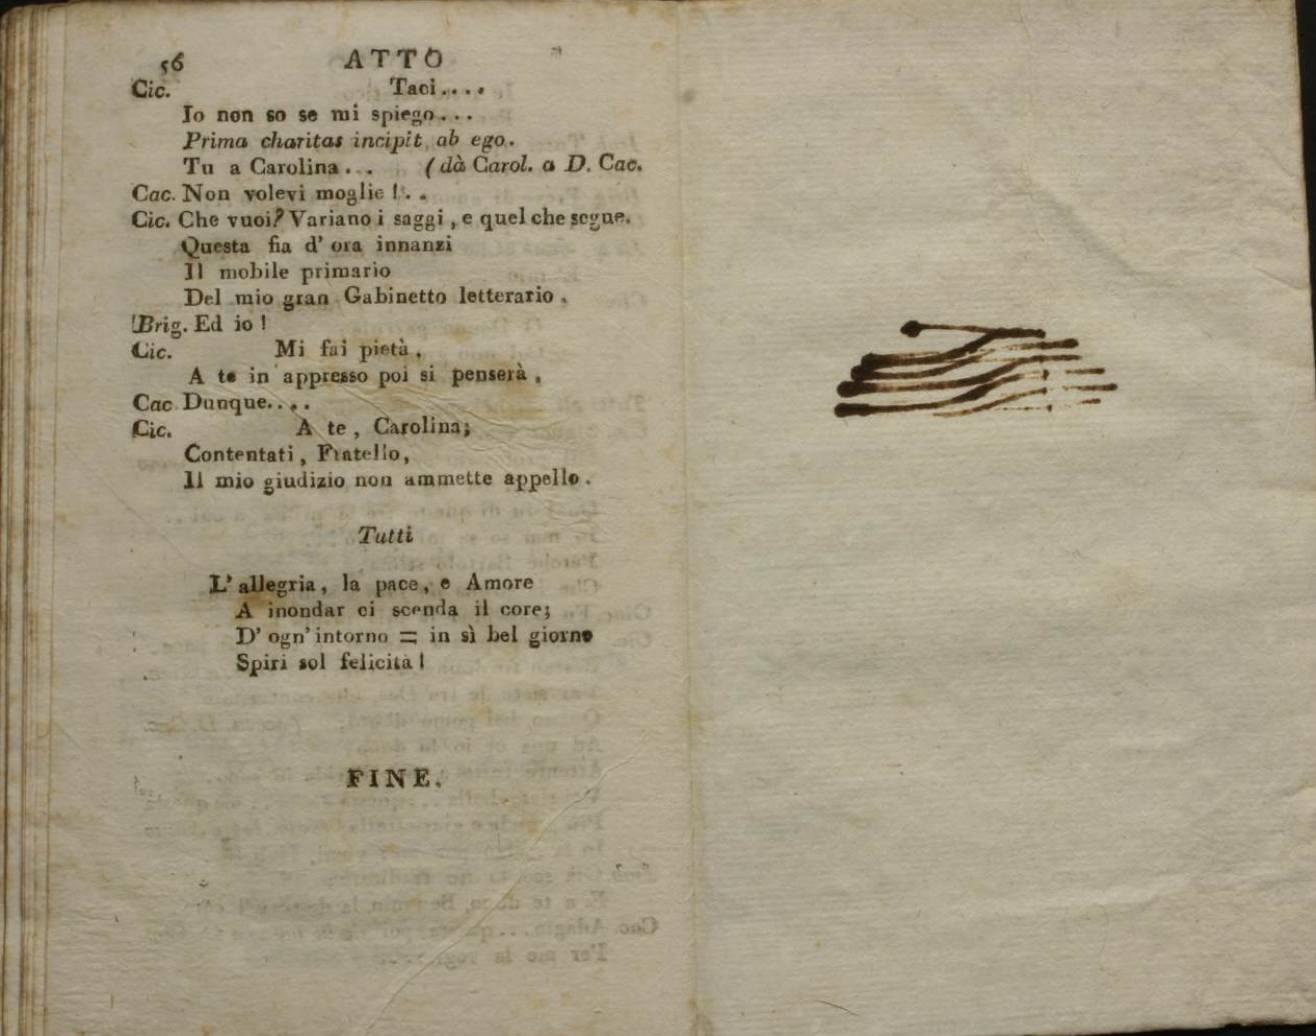 56 ATTO
Cic. Taci....
Io non so se mi spiego...
Prima charitas incipit ab ego.
Tu a Carolina... (dà Carol. a D. Cac.
Cac. Non volevi moglie!..
Cic. Che vuoi? Variano i saggi, e quel che segue.
Questa fia d' ora innanzi
Il mobile primario
Del mio gran Gabinetto letterario.
Brig. Ed io!
Cic. Mi fai pietà,
A te in appresso poi si penserà,
Cac. Dunque....
Cic. A te, Carolina;
Contentati, Fratello,
Il mio giudizio non ammette appello.
Tutti
L' allegria, la pace, e Amore
A inondar ci scenda il core;
D' ogn' intorno = in sì bel giorno
Spiri sol felicità!
FINE.